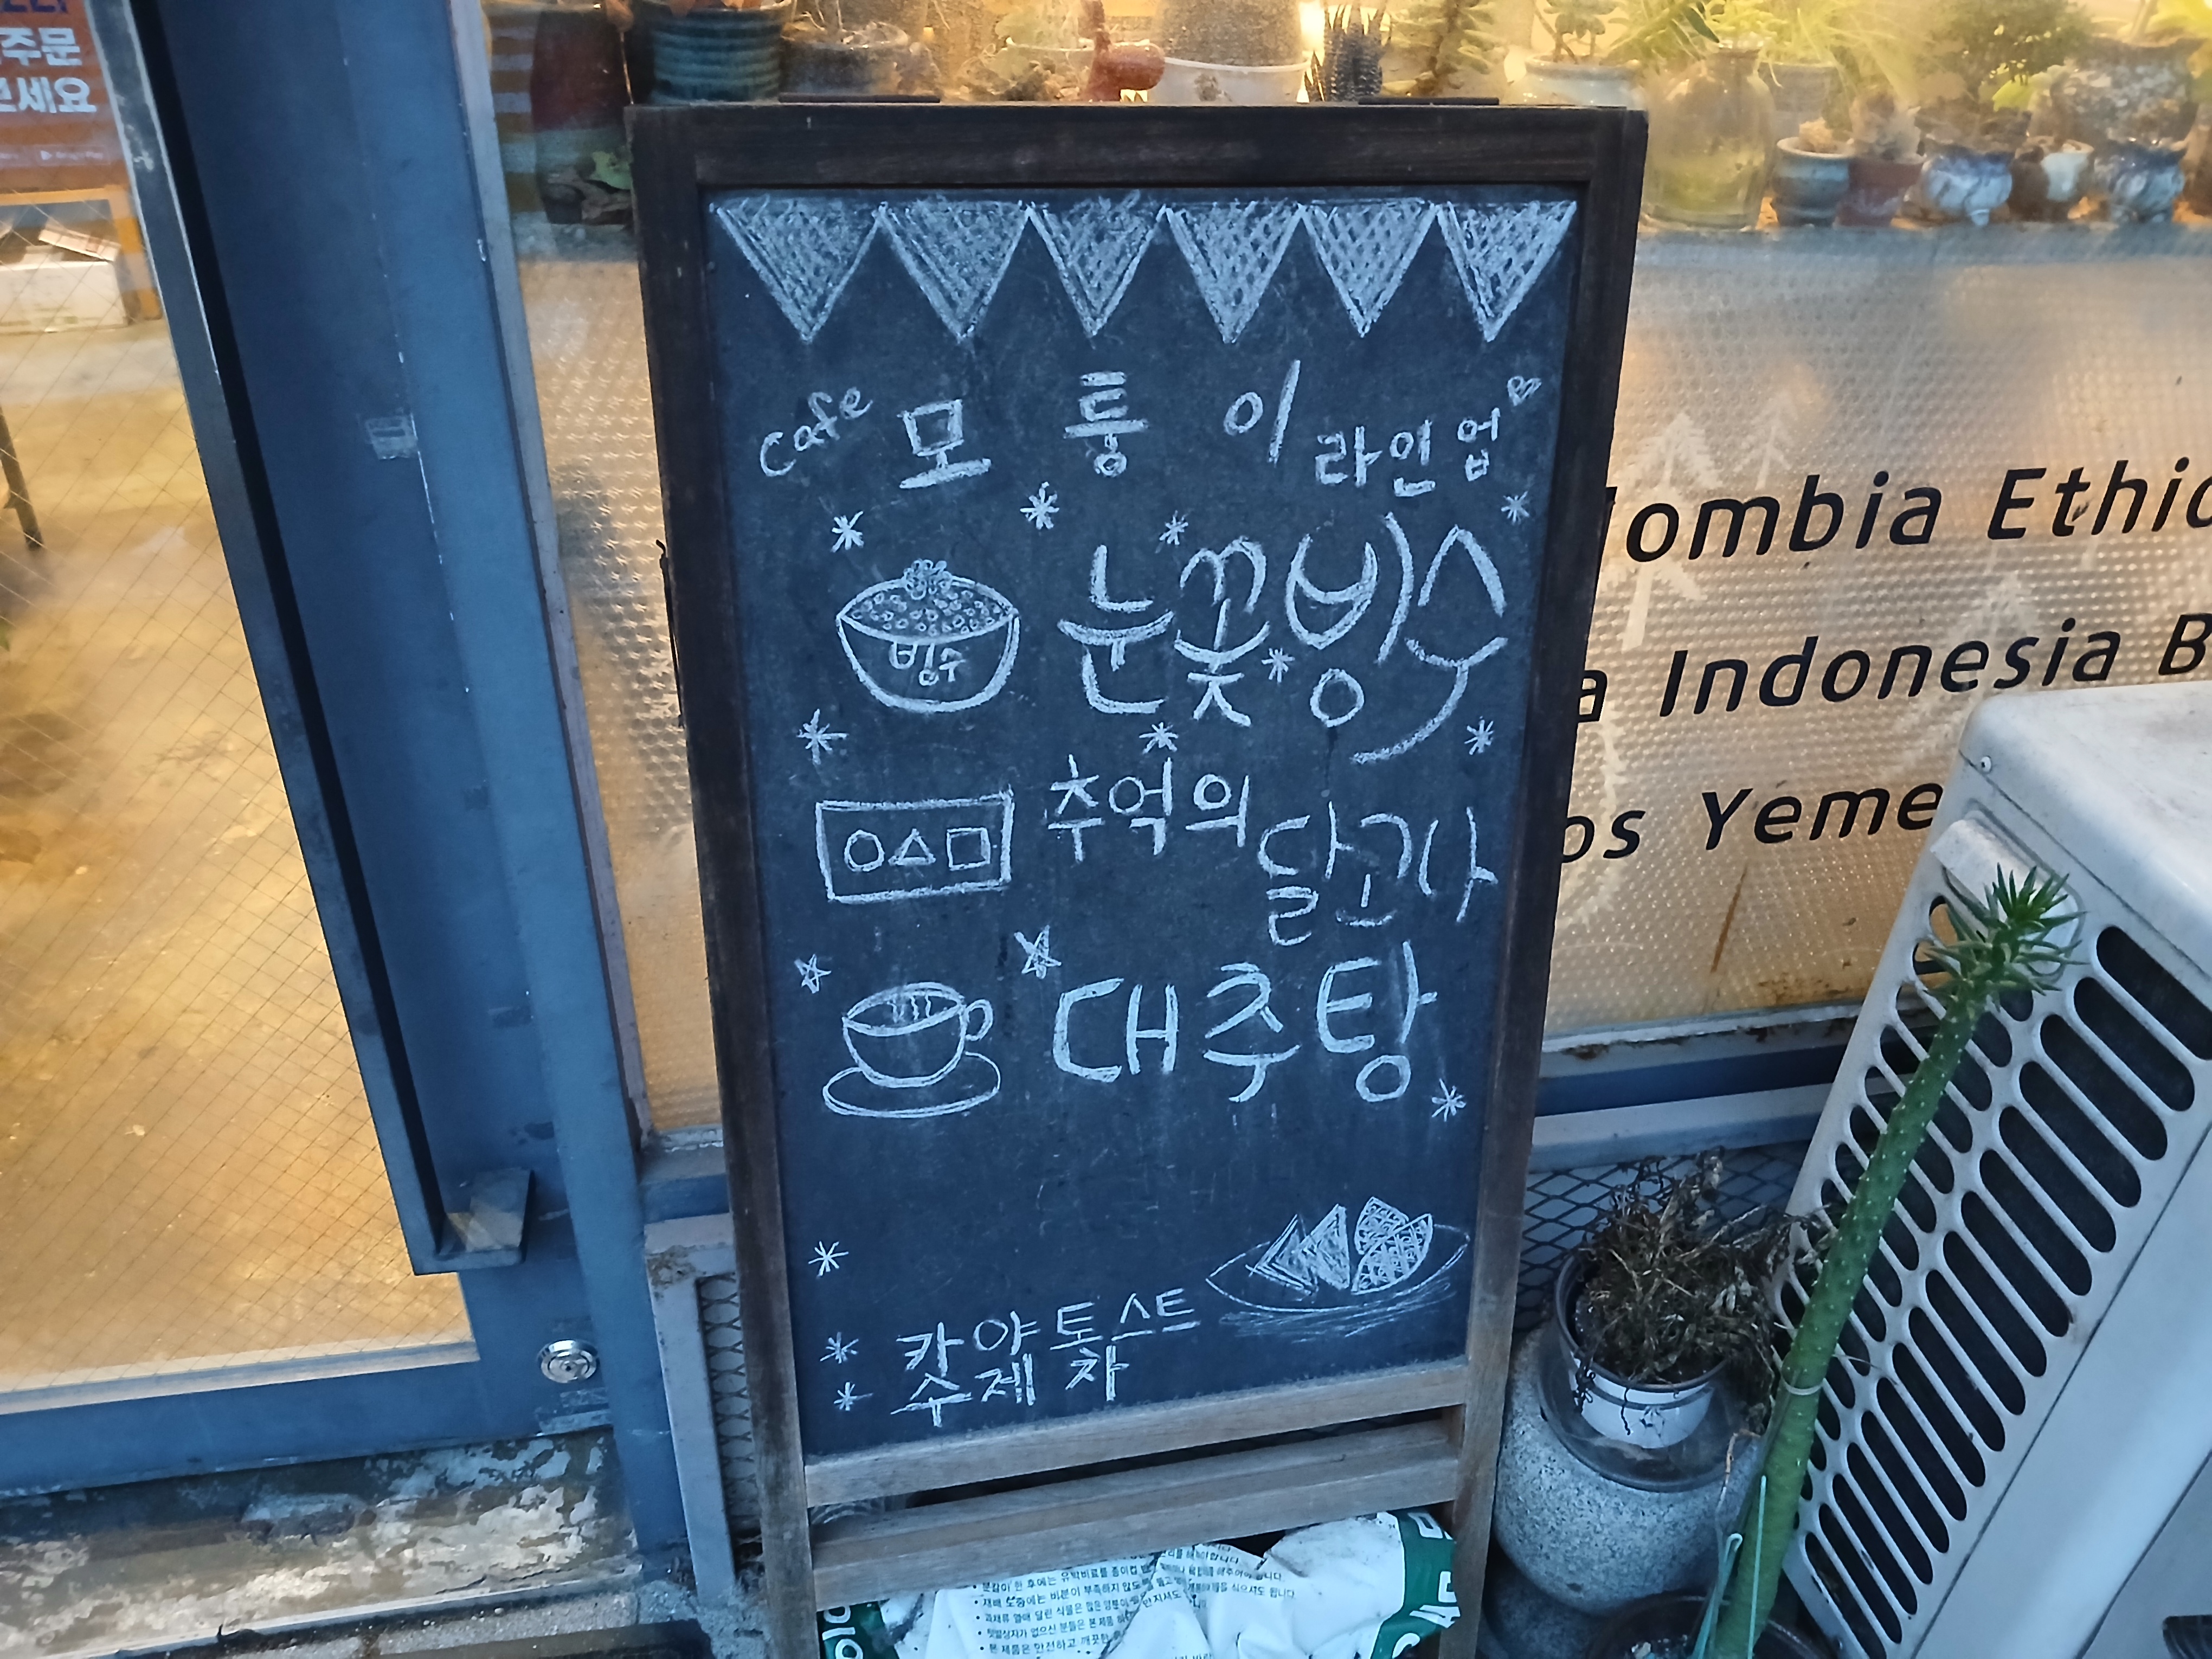 주문
보세요
Cafe 모퉁이 라인업
눈꽃빙수
빙수
추억의
달고나
대추탕
카야토스트
수제 차
lombia Ethio
a Indonesia B
os Yeme